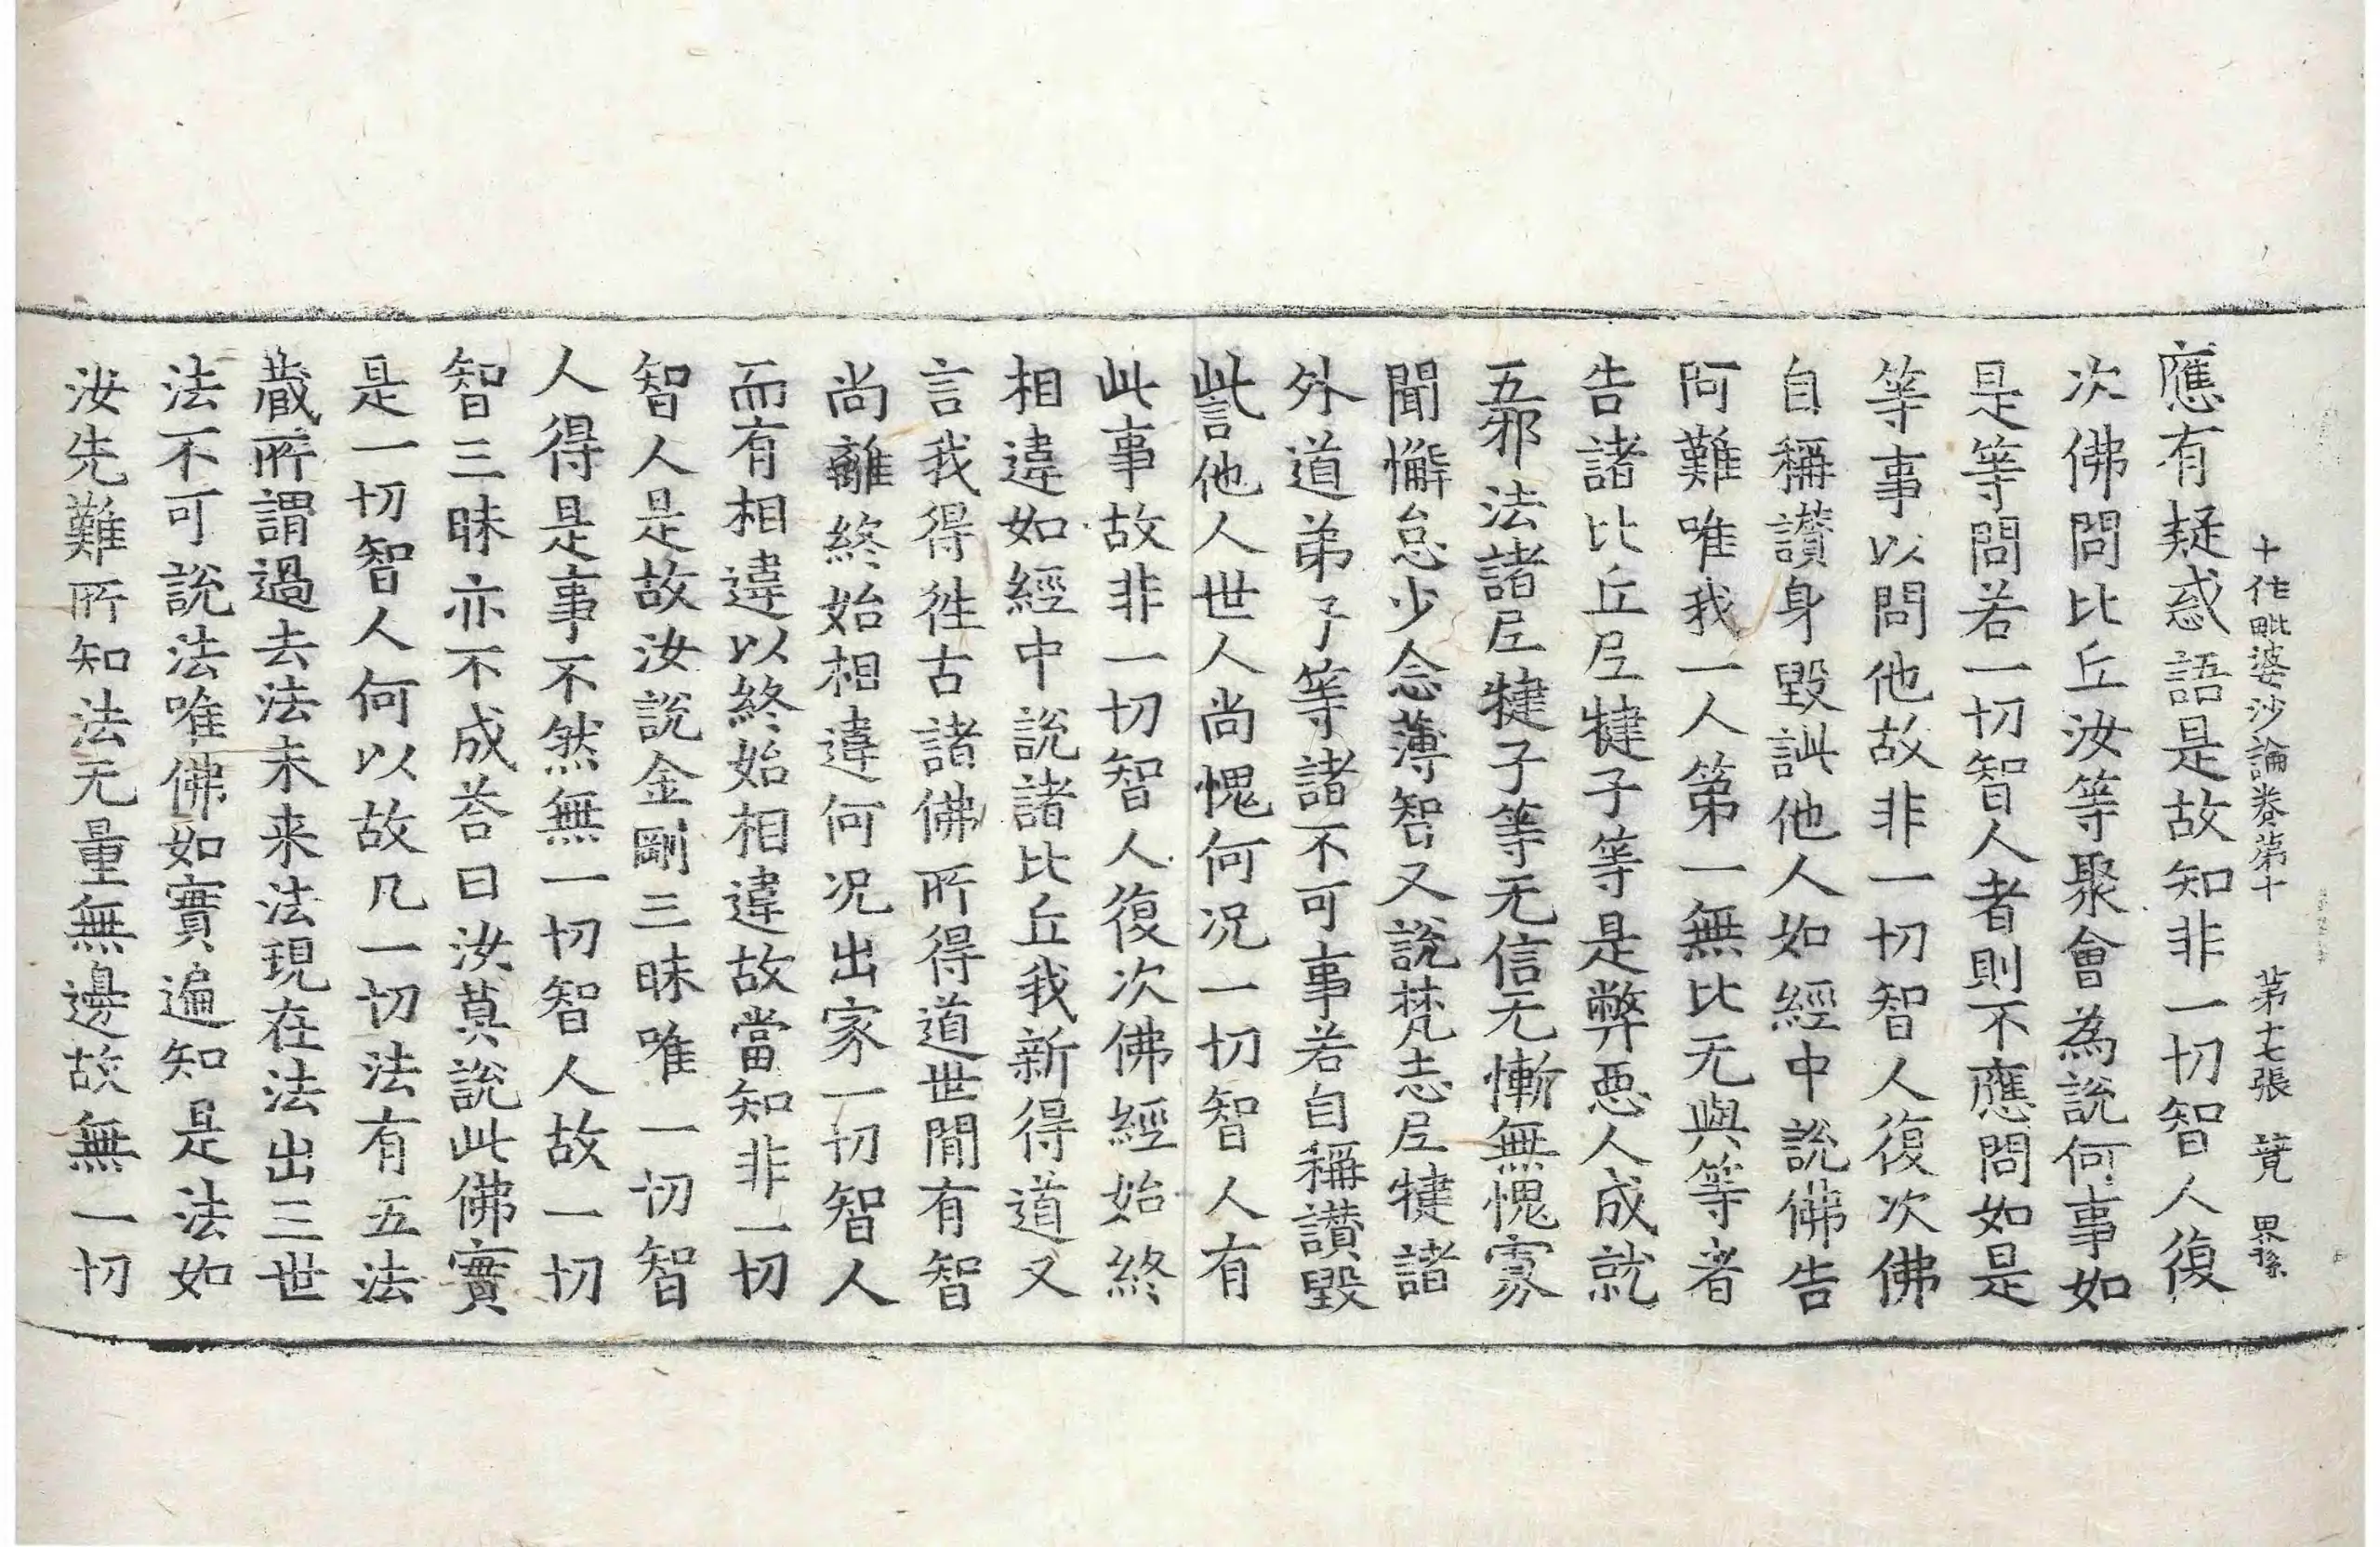 十住毗婆沙論卷第十 第七張 競 界孫
應有疑惑語是故知非一切智人復
次佛問比丘汝等聚會為說何事如
是等問若一切智人者則不應問如是
等事以問他故非一切智人復次佛
自稱讃身毀訿他人如經中說佛告
阿難唯我一人第一無比无與等者
告諸比丘尼揵子等是弊惡人成就
五邪法諸尼揵子等无信无慚無愧寡
聞懈怠少念薄智又說梵志尼揵諸
外道弟子等諸不可事若自稱讃毀
訾他人世人尚愧何况一切智人有
此事故非一切智人復次佛經始終
相違如經中說諸比丘我新得道又
言我得徃古諸佛所得道世閒有智
尚離終始相違何况出家一切智人
而有相違以終始相違故當知非一切
智人是故汝說金剛三昧唯一切智
人得是事不然無一切智人故一切
智三昧亦不成荅曰汝莫說此佛實
是一切智人何以故凡一切法有五法
藏所謂過去法未来法現在法出三世
法不可說法唯佛如實遍知是法如
汝先難所知法无量無邊故無一切